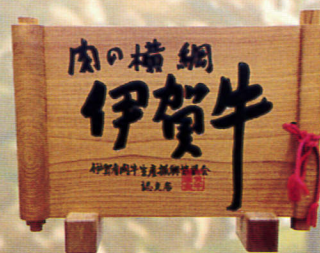 肉の横綱
伊賀牛
伊賀産肉牛生産振興協議会
認定店